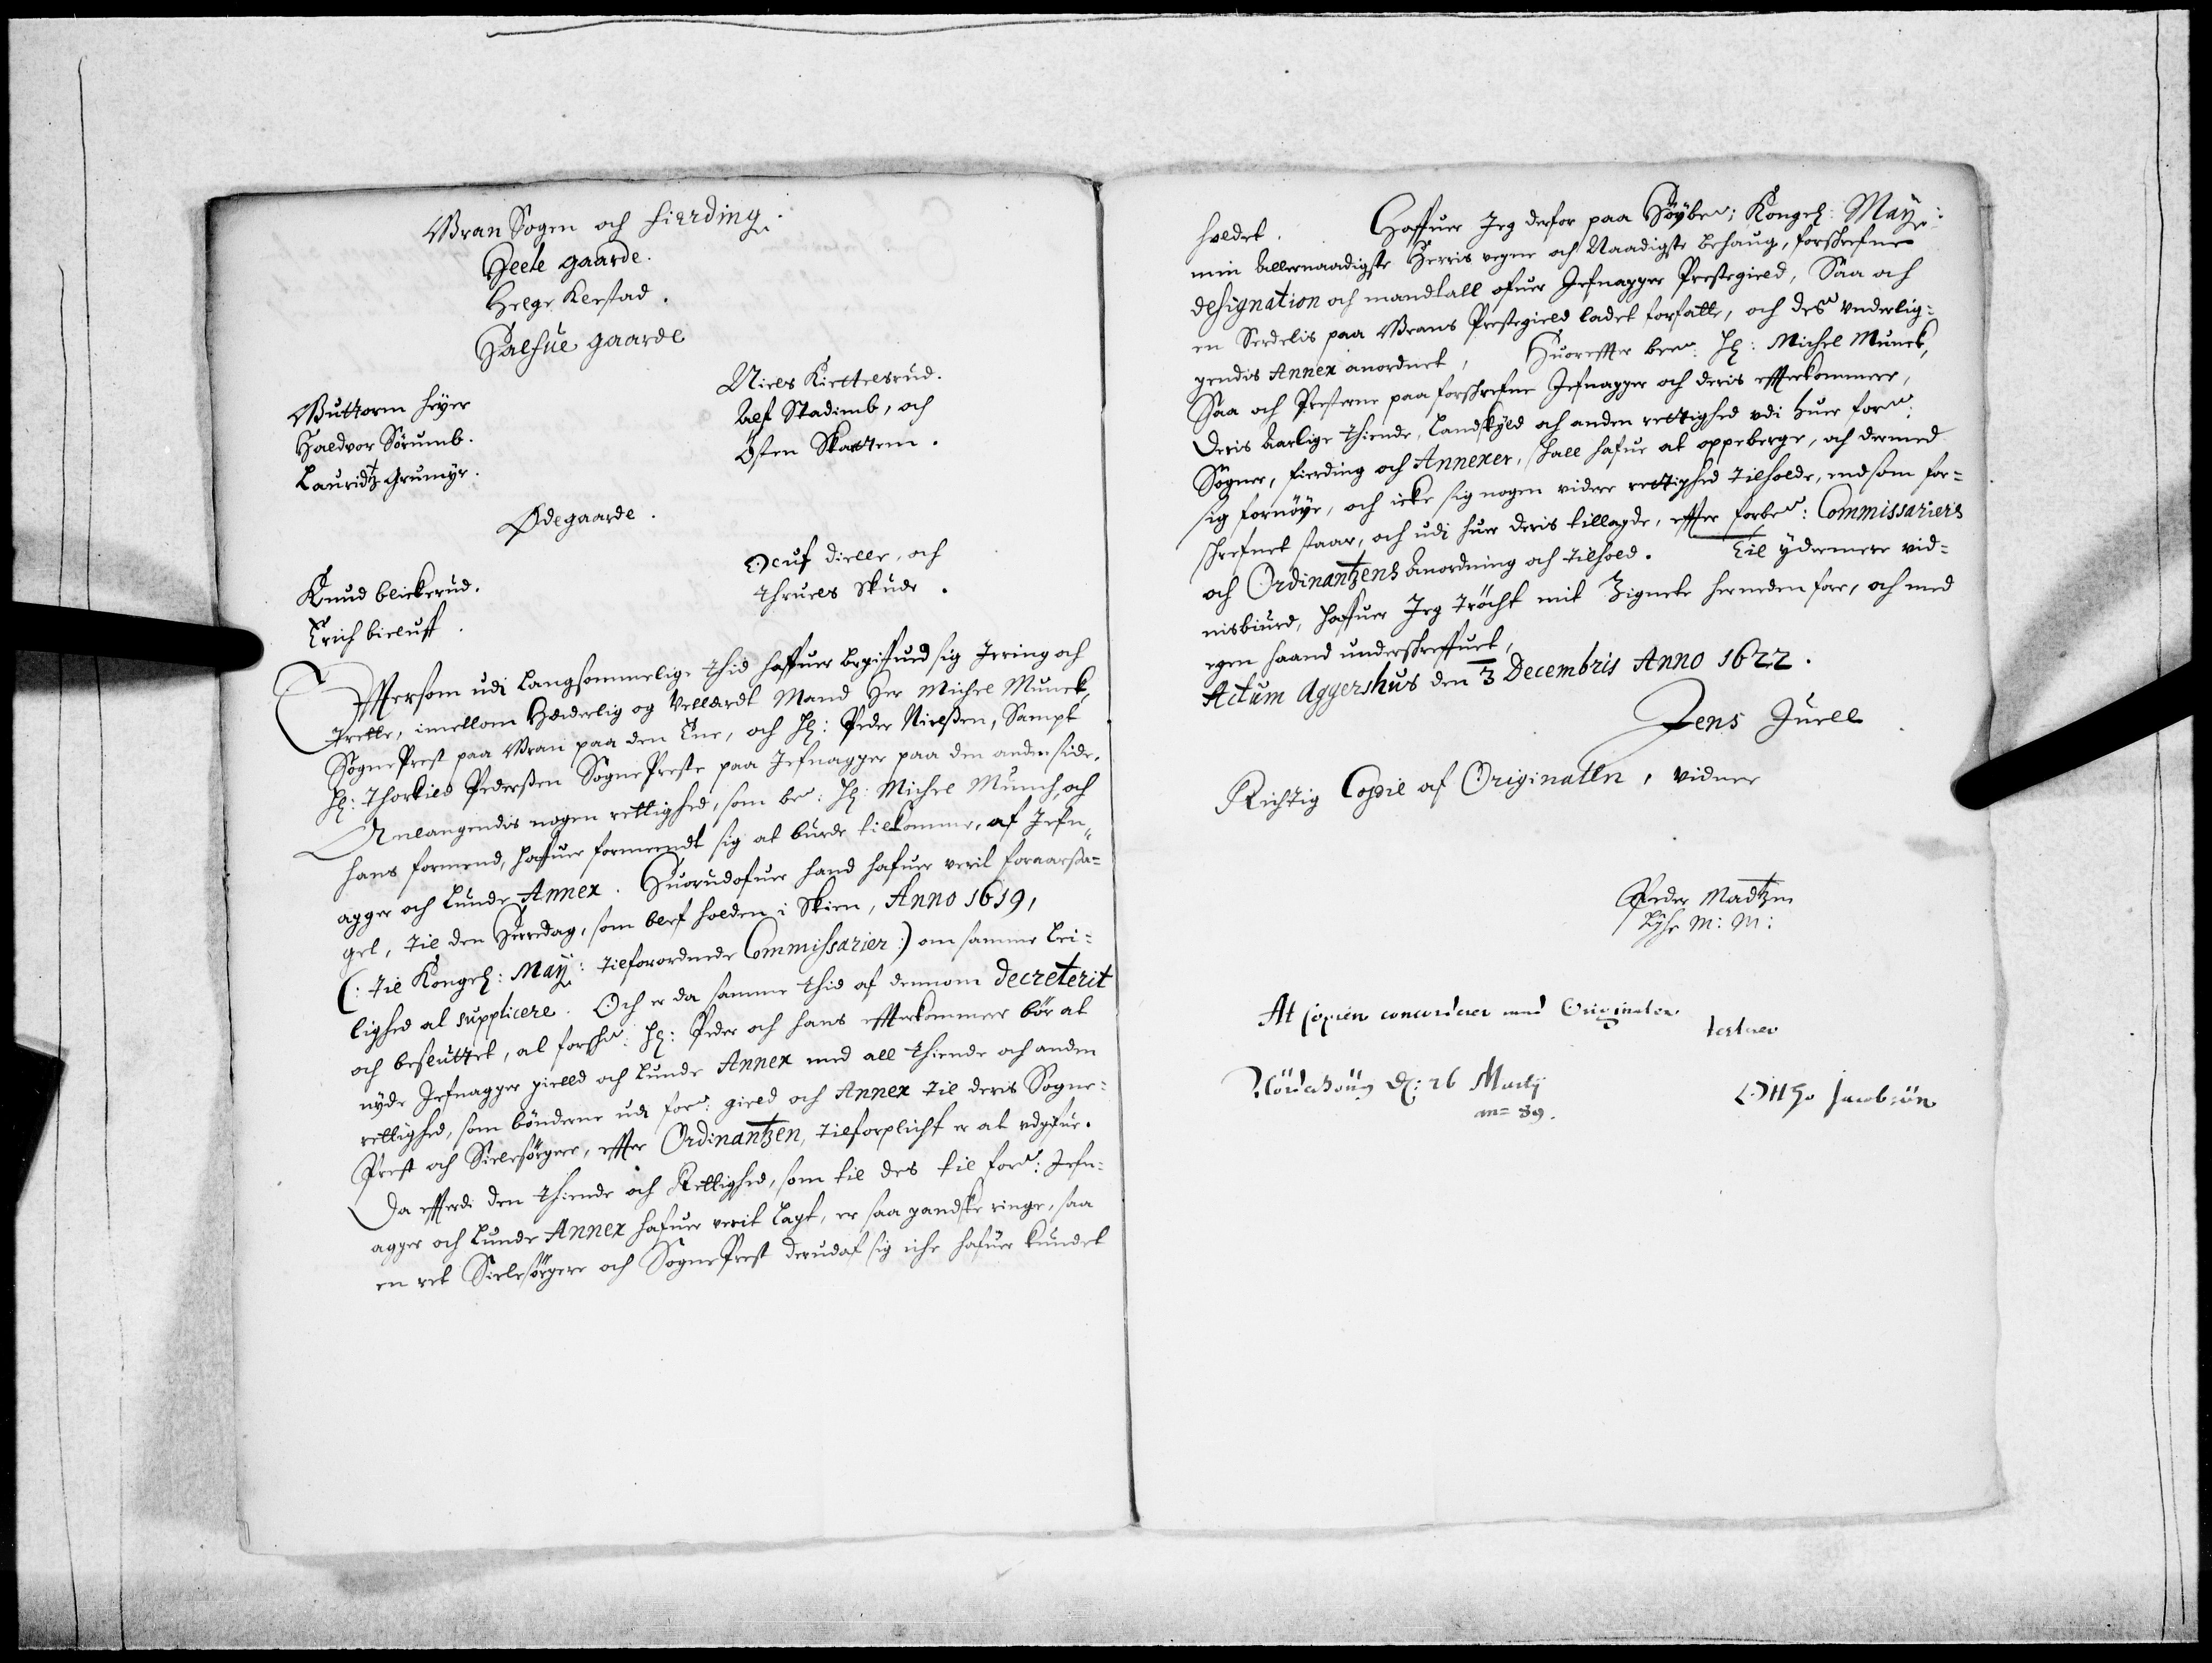 Gran Sogen och fierding.
Heele gaarde.
Helge Klestad.
Halfue gaarde
Guttorm Heyer
Haldvor Sörumb.
Lauridtz Grumyr.
Niels Kiettelsrud.
Alf Stadimb, och
Östen Skattem.
Ødegaarde.
Knud blickerud.
Erich bieluff.
Oluf dielle, och
Thruels Skude.
Effthersom udi langsommelige thid haffuer begifued sig Jrring och
Trette, imellom Hæderlig og Vellærdt Mand Her Michel Munck,
SognePrest paa Gran paa den Ene, och H: Peder Nielßen, Sampt
H: Thorkild Pederßen SognePreste paa Jefnagger paa den anden side,
Anlangendis nogen rettighed, som be: H: Michel Munch, och
hans formend, haffuer formeendt sig at burde tilkomme, af Jefn-
agger och Lunde Annex. Huorudofuer hand hafuer verit foraarsa-
get, til den Herredag, som blef holden i Skien, Anno 1619,
(: til Kongel: May: tilforordnede Commissarier:) om samme Lei-
lighed at supplicere. Och er da samme thid af dennom decreterit
och besluttet, at forschr: H: Peder och hans effterkommere bör at
nyde Jefnagger gielld och Lunde Annex med all thiende och anden
rettighed, som bönderne udi for: gield och Annex til deris Sogne-
Prest och Sielesörger, effter Ordinantzen, tilforplicht er at udgifue.
Da efferdi den thiende och Rettighed, som til des til for: Jefn-
agger och Lunde Annex hafuer verit lagt, er saa gandske ringe, saa
en ret Sielesörgere och SognePrest derudaf sig iche hafuer kundet
holdet. Haffuer Jeg derfor paa Höybe: Kongel: May:
min Allernaadigste Herris vegne och Naadigste behaug, forschrefne
designation och mandtall ofuer Jefnagger Prestegield, Saa och
en Serdelis paa Grans Prestegield ladet forfatte, och des underlig-
gendis Annex anordnet, Huoreffter ber: H: Michel Munck,
Saa och Presterne paa forschrefne Jefnagger och deris effterkommere,
Deris Aarlige thiende, Landskyld och anden rettighed udi huer for:
Sogner, fierding och Annexer, skall hafue at oppeberge, och dermed
sig fornöye, och icke sig nogen videre rettighed tilholde, end som for-
schrefuet staar, och udi huer deris tillagde, effter forber: Commissariers
och Ordinantzens Anordning och tilhold. Til ydermere vid-
nisbiurd, haffuer Jeg tröcht mit Zignete herneden fore, och med
egen haand underschreffuet,
Actum Aggershus den 3 Decembris Anno 1622.
Jens Juell
Richtig Copie af Originalln, vidner
Peder Madtzen
M: M:
At copien concorderer med Originalen
testerer
Nörderhoug d: 26 Martij
ao 89.
Otto Jacobsön